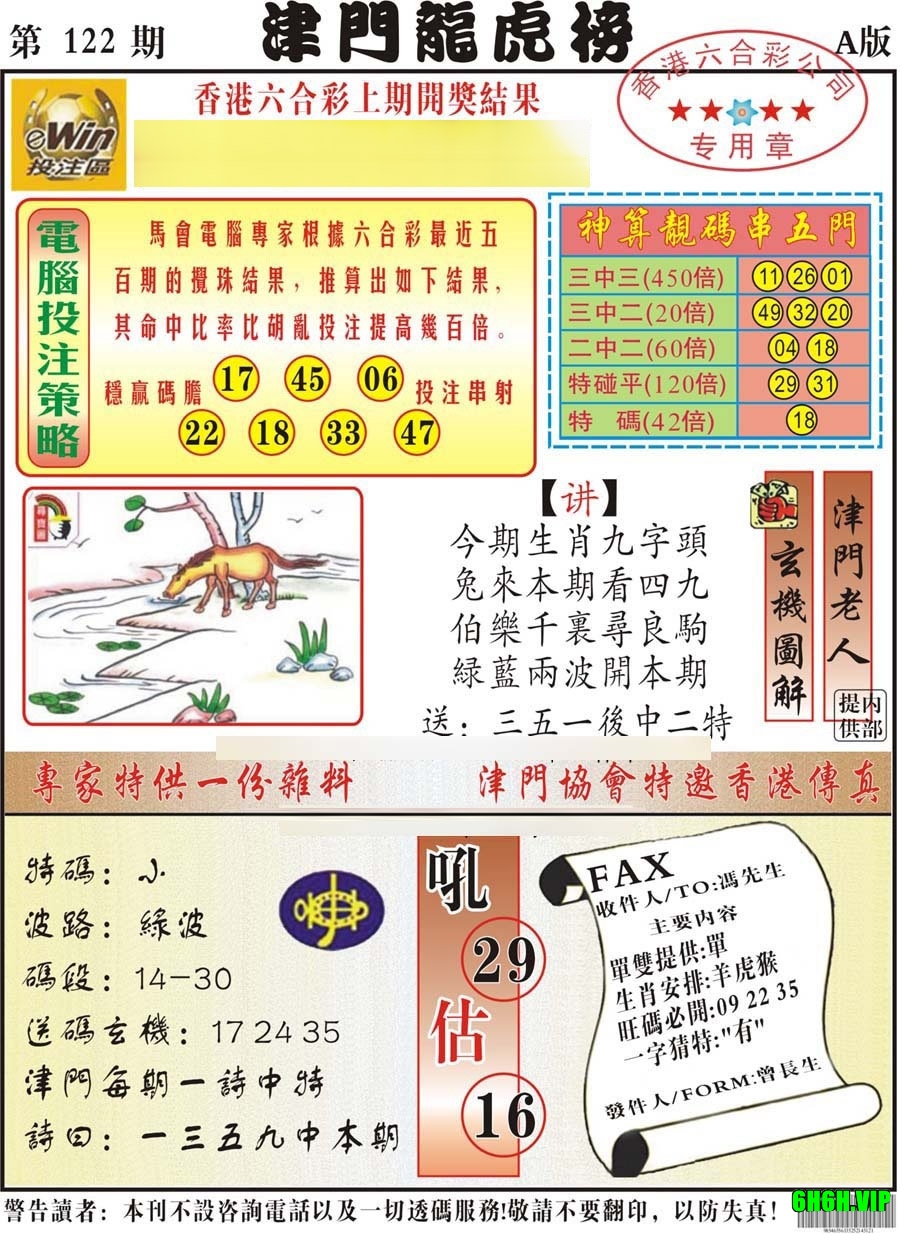 第 122 期
津門龍虎榜
A版
eWin
投注區
香港六合彩上期開獎結果
香港六合彩公司
专用章
電腦投注策略
馬會電腦專家根據六合彩最近五
百期的攪珠結果，推算出如下結果，
其命中比率比胡亂投注提高幾百倍。
穩贏碼膽 17 45 06 投注串射
22 18 33 47
神算靚碼串五門
三中三(450倍) 11 26 01
三中二(20倍) 49 32 20
二中二(60倍) 04 18
特碰平(120倍) 29 31
特 碼(42倍) 18
尋寶圖
【讲】
今期生肖九字頭
兔來本期看四九
伯樂千裏尋良駒
緑藍兩波開本期
送：三五一後中二特
玄機圖解
津門老人
内部提供
專家特供一份雜料
津門協會特邀香港傳真
特碼：小
波路：緑波
碼段：14-30
送碼玄機：17 24 35
津門每期一詩中特
詩曰：一三五九中本期
吼
29
估
16
FAX
收件人/TO:馮先生
主要内容
單雙提供:單
生肖安排:羊虎猴
旺碼必開:09 22 35
一字猜特:"有"
發件人/FORM:曾長生
警告讀者：本刊不設咨詢電話以及一切透碼服務!敬請不要翻印，以防失真！
6H6H.VIP